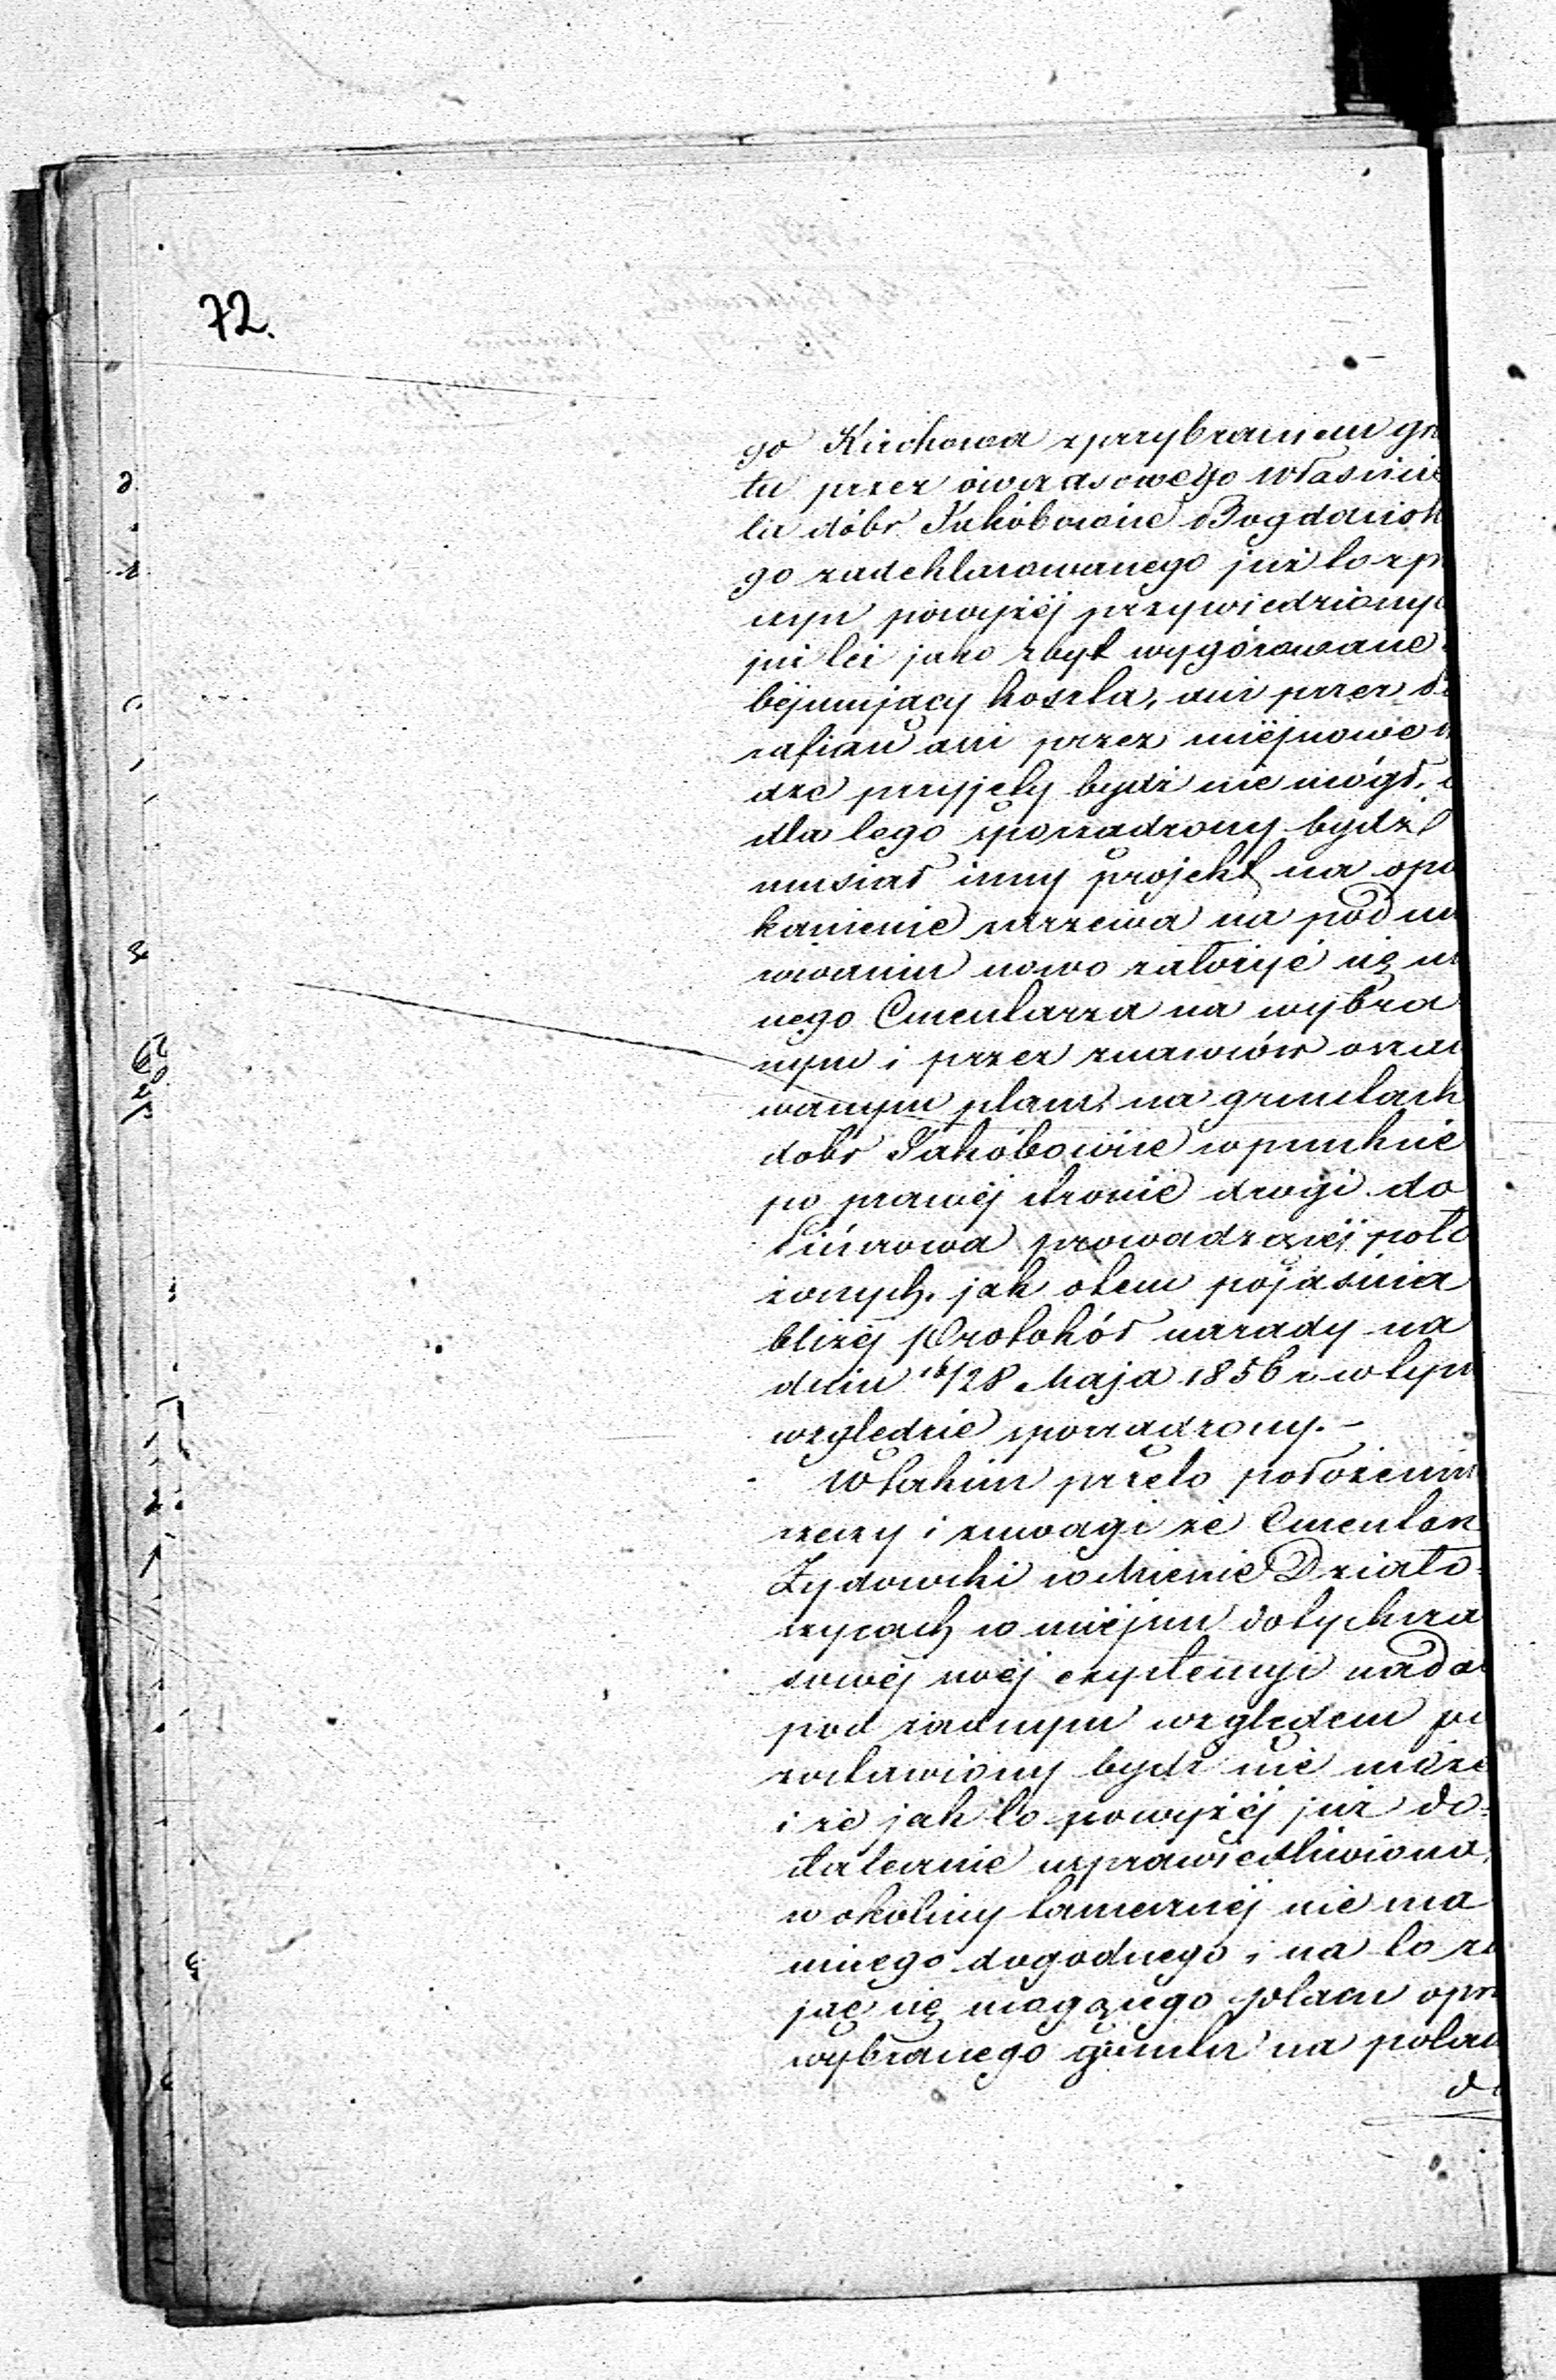 72.
go Kirchowa z przybraniem gr
tu przez ówczasowego własnicie
la dóbr Jakóbowice Bogdańsk
go zadeklarowanego już to zp
nym powyżéj przywiedziony
już też jako zbyt wygórowane
bejmujący koszta, ani przez
rafian ani przez miéjscowe
dze przyjęty bydź nie mógł,
dla tego sporządzony bydź
musiał inny projekt na opa
kanienie na pod
wianiu nowo założyć się m
nego Cmentarza na wybra
nym i przez znawców oszac
wanym placu na gruntach
dóbr Jakóbowice w punkcie
po prawéj stronie drogi do
prowadzącéj poło
żonych. jak otem pojaśnia
bliżéj Protokół narady na
dniu 16/28 Maja 1856 r. w tym
względzie sporządzony.-
W takim przeto położeniu
rzeczy i zuwagi że Cmentarz
Żydowski w Mieście Działo-
szycach w miéjscu dotychcza
sowéj swéj exystencyi nadal
pod żadnym względem po
zostawiony bydź nie może
i że jak to powyżéj już do-
statecznie usprawiedliwiono,
w okolicy tamecznéj nie ma
innego dogodnego i na to
jąć się mogącego placu opró
wybranego gruntu na polac